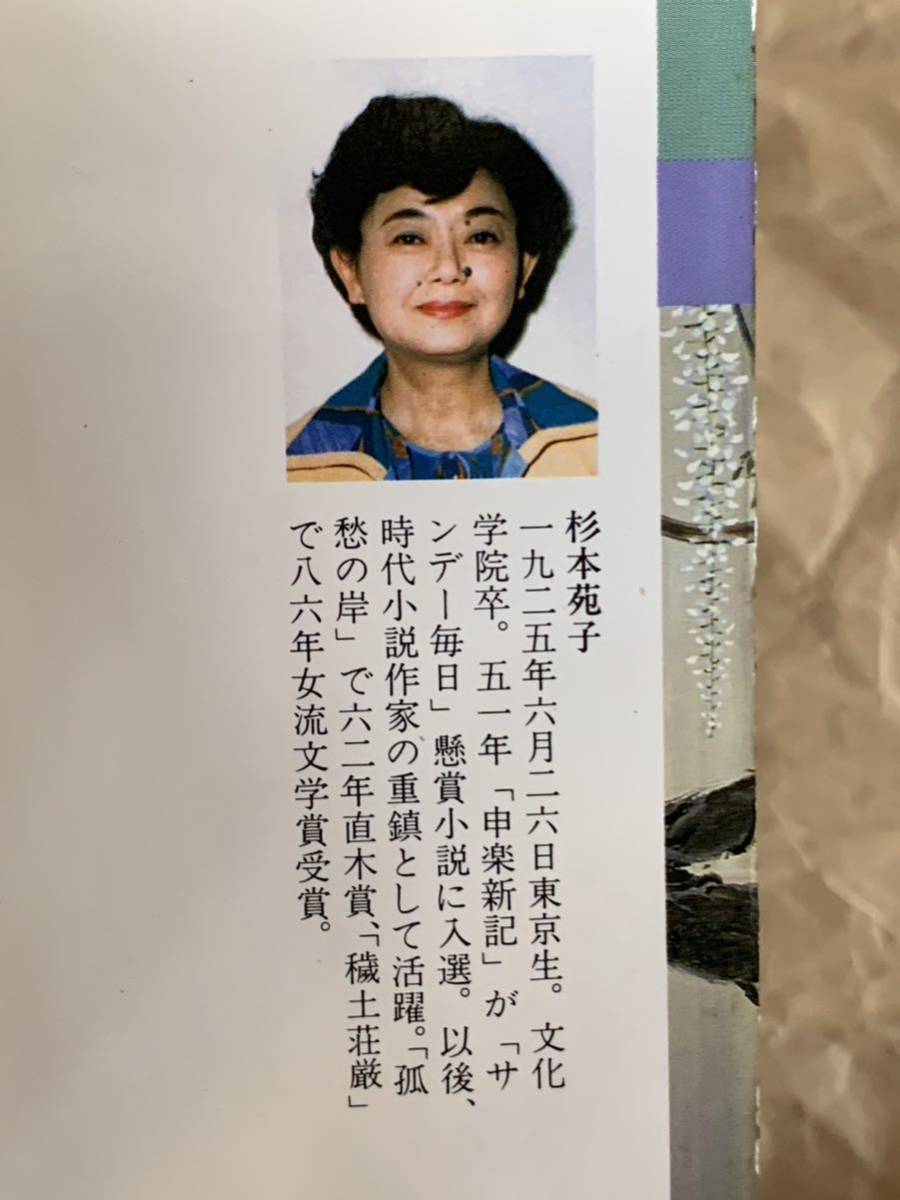 杉本苑子
一九二五年六月二六日東京生。文化
学院卒。五一年「申楽新記」が「サ
ンデー毎日」懸賞小説に入選。以後、
時代小説作家の重鎮として活躍。「孤
愁の岸」で六二年直木賞、「穢土荘厳」
で八六年女流文学賞受賞。